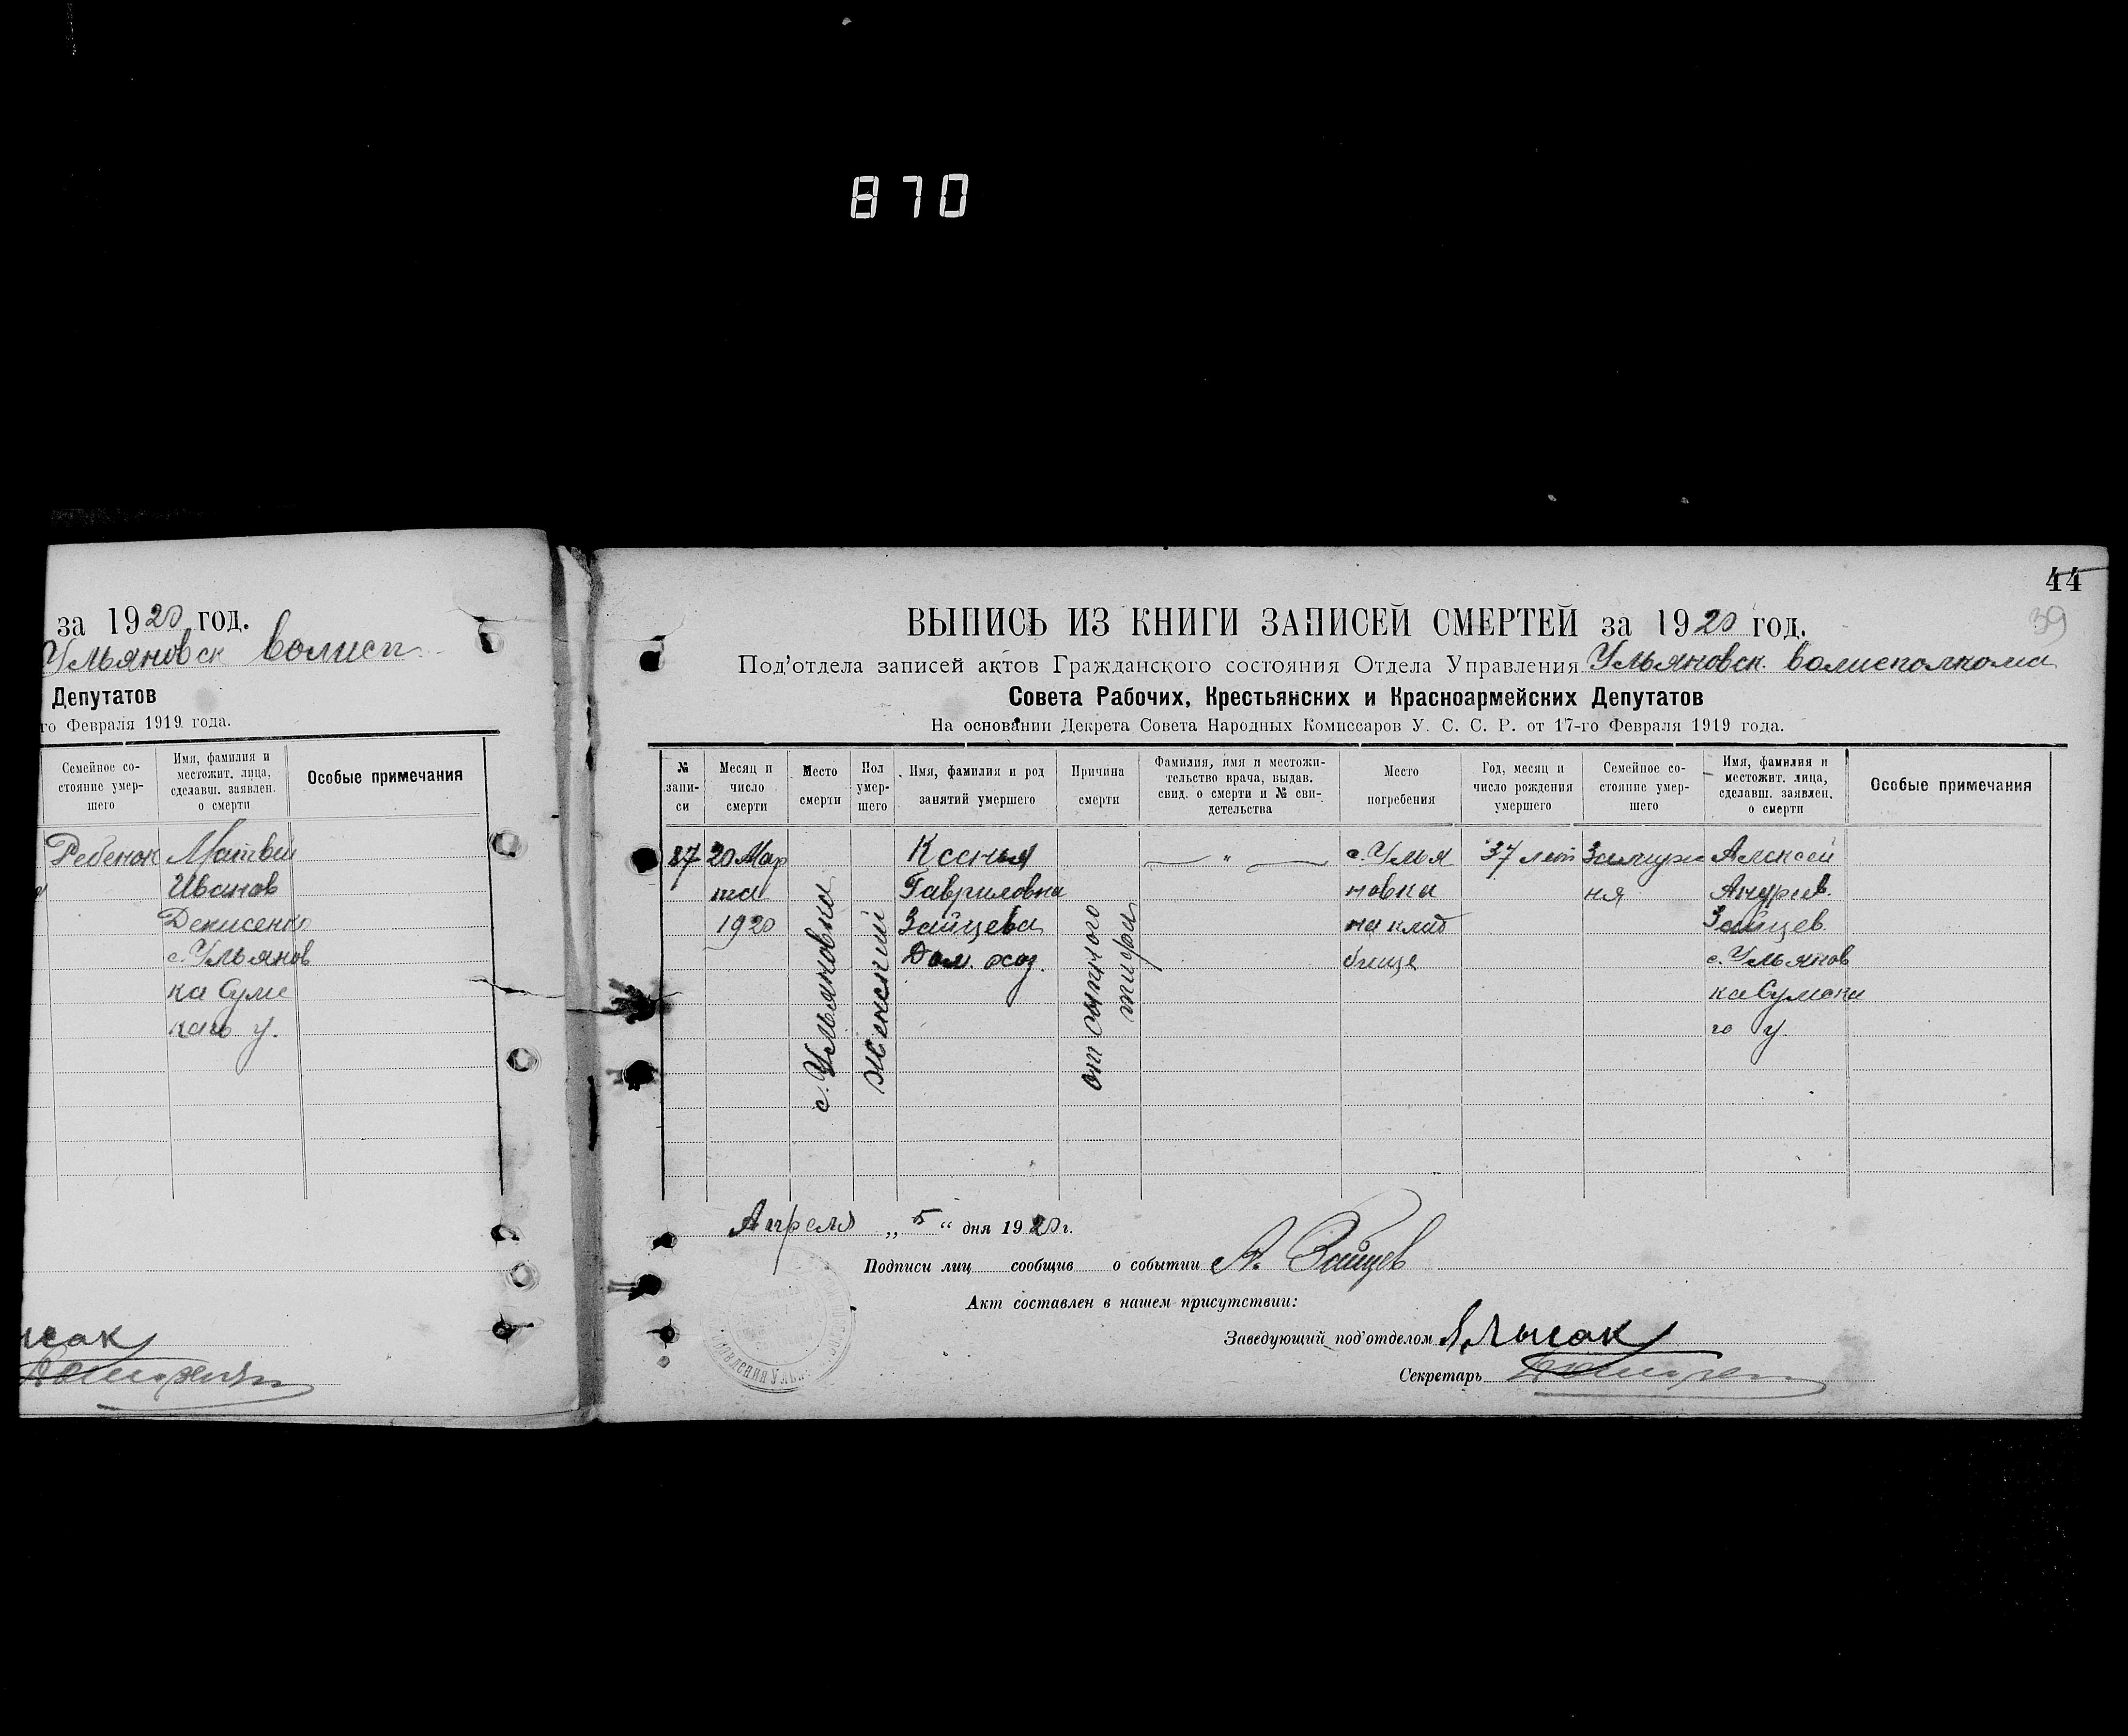 870
за 1920 год.
Ульяновск волисп.
Депутатов
го Февраля 1919 года.
Семейное со-
стояние умер-
шего
Имя, фамилия и
местожит. лица,
сделавш. заявлен.
о смерти
Особые примечания
Ребенок
Матвей
Иванов
Денисенко
с. Ульянов
ка Сумс
каго у.
44
39
ВЫПИСЬ ИЗ КНИГИ ЗАПИСЕЙ СМЕРТЕЙ за 1920 год.
Под'отдела записей актов Гражданского состояния Отдела Управления Ульяновск. волисполкома
Совета Рабочих, Крестьянских и Красноармейских Депутатов
На основании Декрета Совета Народных Комиссаров У. С. С. Р. от 17-го Февраля 1919 года.
№
запи-
си
Месяц и
число
смерти
Место
смерти
Пол
умер-
шего
Имя, фамилия и род
занятий умершего
Причина
смерти
Фамилия, имя и местожи-
тельство врача, выдав.
свид. о смерти и № сви-
детельства
Место
погребения
Год, месяц и
число рождения
умершего
Семейное со-
стояние умер-
шего
Имя, фамилия и
местожит. лица,
сделавш. заявлен.
о смерти
Особые примечания
87
20 Мар
та
1920
с. Ульяновка
женский
Ксенья
Гавриловна
Зайцева
Дом. хоз.
от сыпного
тифа
— " —
с. Улья
новка
на клад
бище
37 лет
Замуж
ня
Алексей
Андреев.
Зайцев.
с. Ульянов
ка Сумска
го у.
Апреля „ 5 “ дня 1920 г.
Подписи лиц сообщив о событии А. Зайцев
Акт составлен в нашем присутствии:
Заведующий под'отделом Лысак
Секретарь